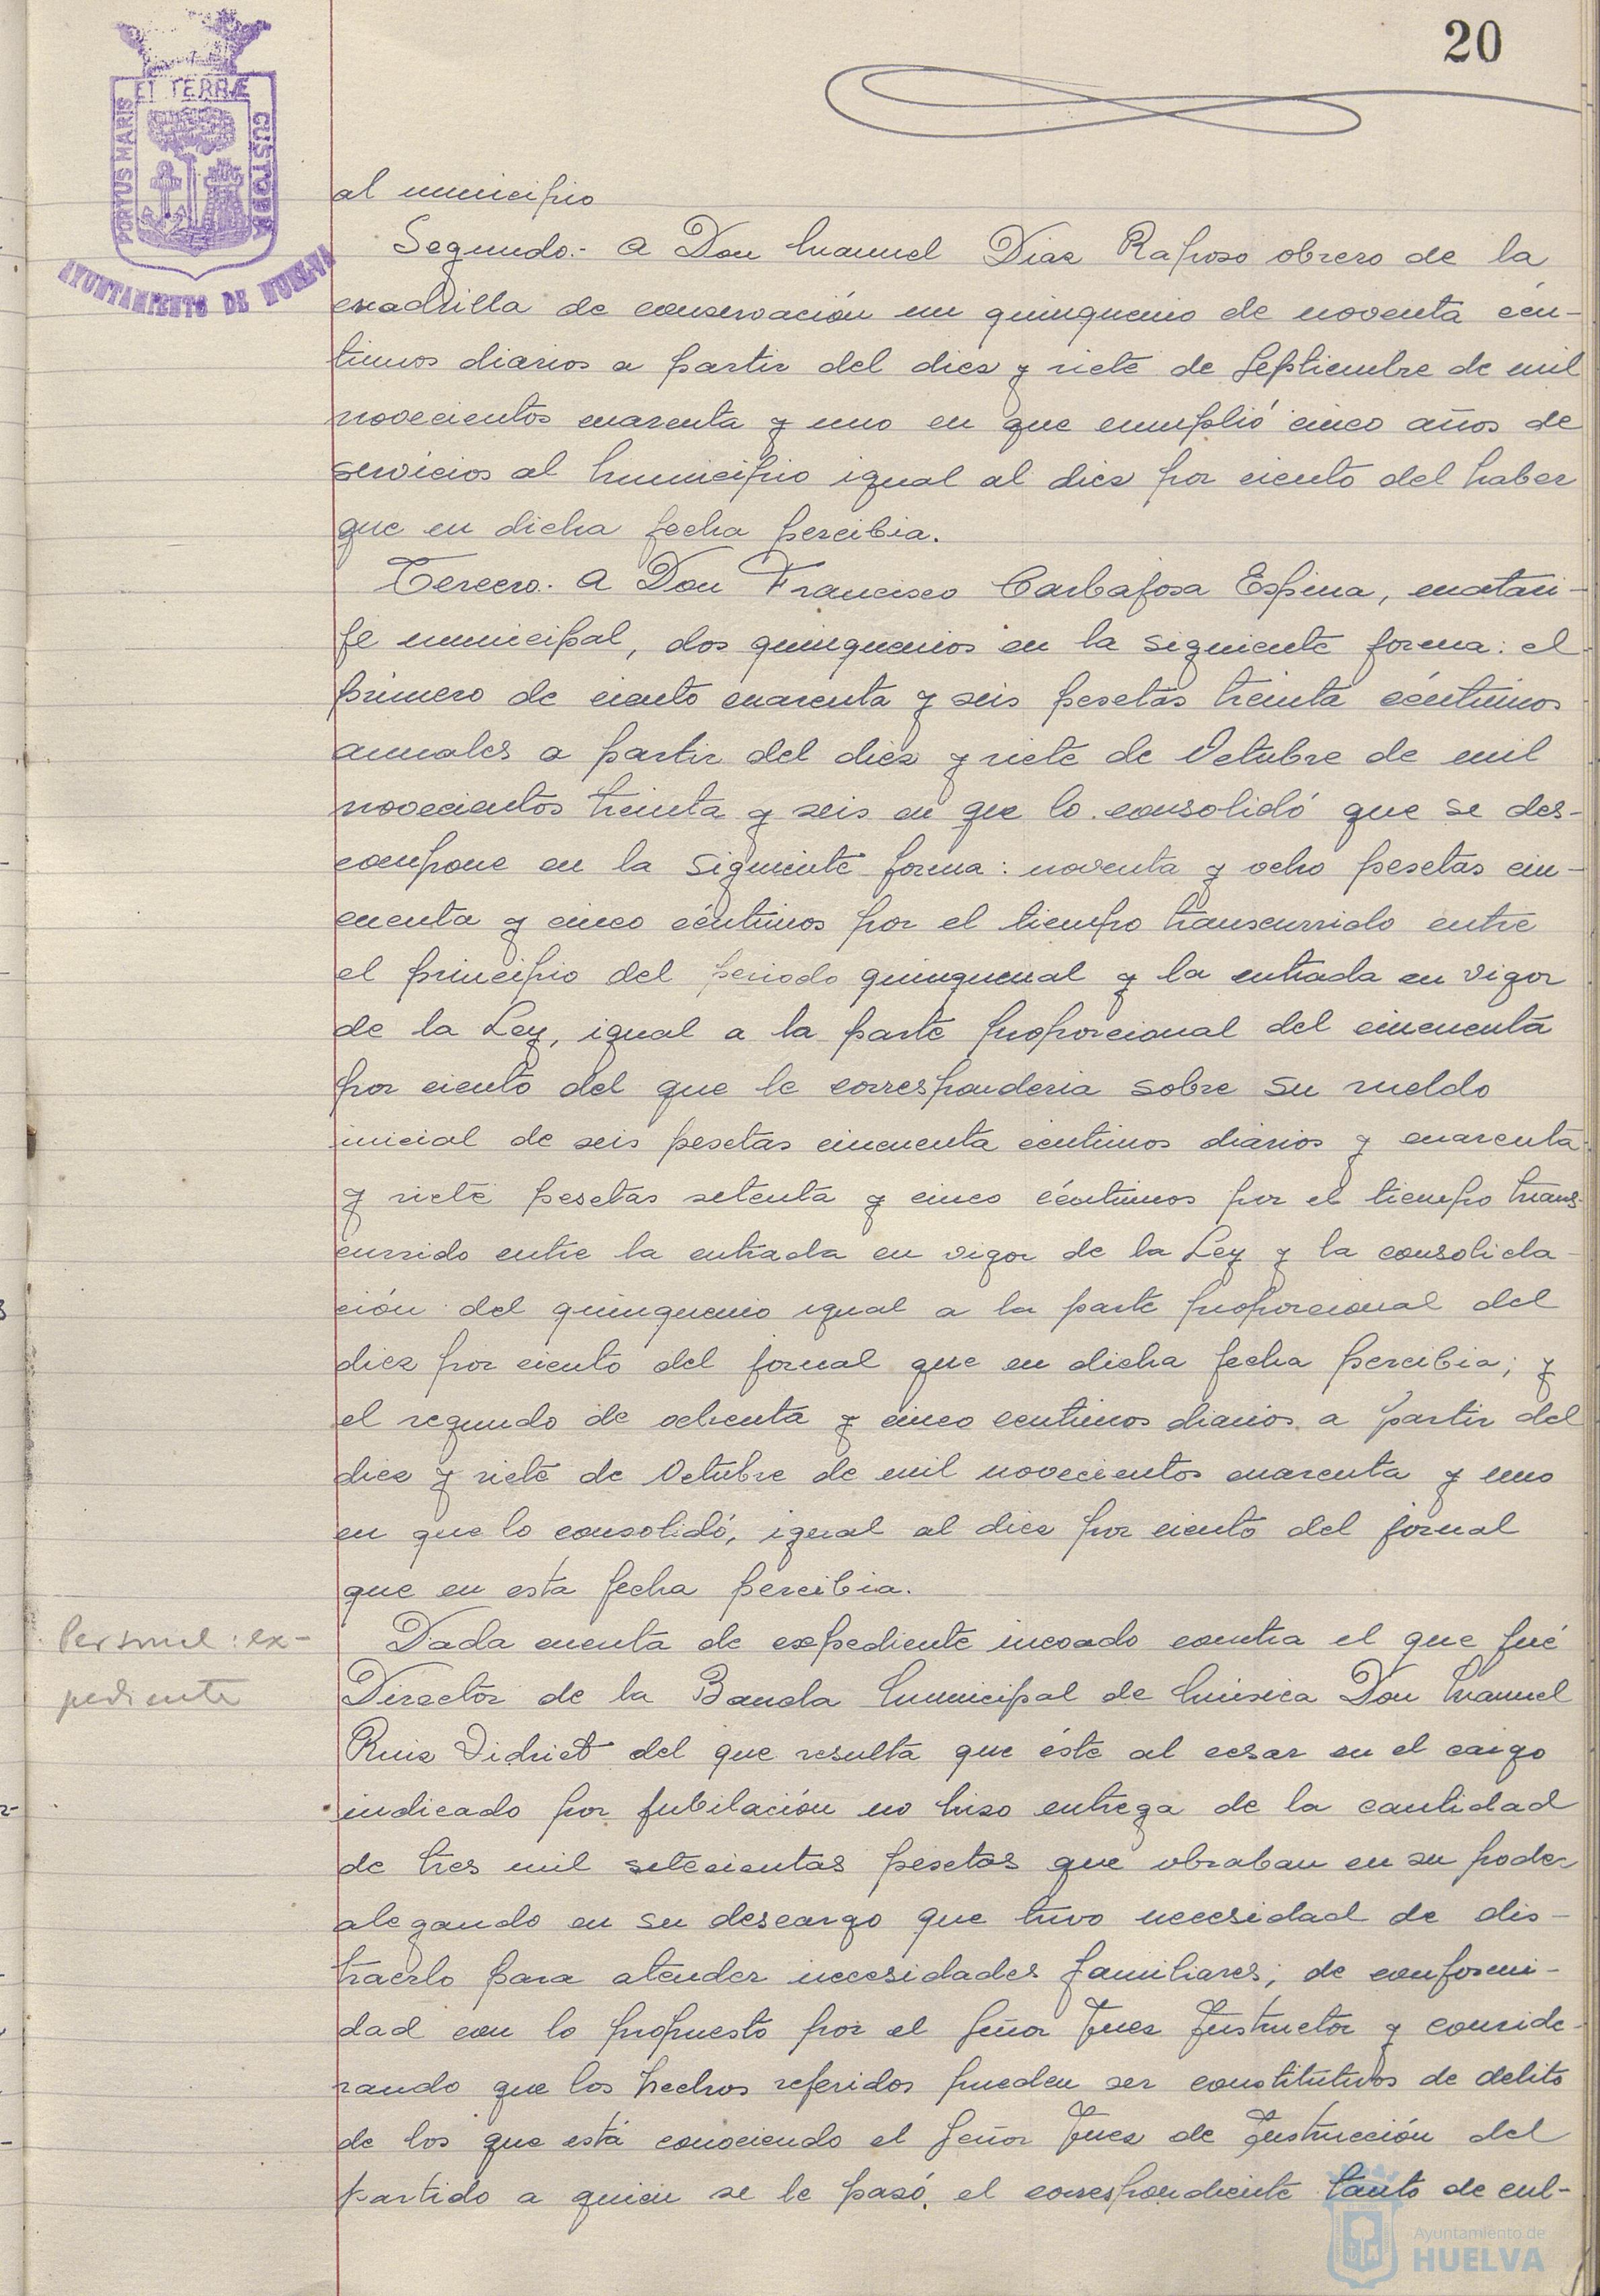 20
PORTUS MARIS ET TERRÆ CUSTODIA
AYUNTAMIENTO DE HUELVA
al municipio
Segundo.- A Don Manuel Diaz Raposo obrero de la
cuadrilla de conservación un quinquenio de noventa cén-
timos diarios a partir del diez y siete de Septiembre de mil
novecientos cuarenta y uno en que cumplió cinco años de
servicios al Municipio igual al diez por ciento del haber
que en dicha fecha percibia.
Tercero.- A Don Francisco Carbajosa Espina, matari-
fe municipal, dos quinquenios en la siguiente forma: el
primero de ciento cuarenta y seis pesetas treinta céntimos
anuales a partir del diez y siete de Octubre de mil
novecientos treinta y seis en que lo consolidó que se des-
compone en la siguiente forma: noventa y ocho pesetas cin-
cuenta y cinco céntimos por el tiempo transcurrido entre
el principio del periodo quinquenal y la entrada en vigor
de la Ley, igual a la parte proporcional del cincuenta
por ciento del que le corresponderia sobre su sueldo
inicial de seis pesetas cincuenta céntimos diarios y cuarenta
y siete pesetas setenta y cinco céntimos por el tiempo trans-
currido entre la entrada en vigor de la Ley y la consolida-
ción del quinquenio igual a la parte proporcional del
diez por ciento del jornal que en dicha fecha percibia; y
el segundo de ochenta y cinco centimos diarios a partir del
diez y siete de Octubre de mil novecientos cuarenta y uno
en que lo consolidó, igual al diez por ciento del jornal
que en esta fecha percibia.
Personal: ex-
pediente
Dada cuenta de expediente incoado contra el que fué
Director de la Banda Municipal de Música Don Manuel
Ruiz Vidriet del que resulta que éste al cesar en el cargo
indicado por jubilación no hizo entrega de la cantidad
de tres mil setecientas pesetas que obraban en su poder
alegando en su descargo que tuvo necesidad de dis-
traerlo para atender necesidades familiares; de conformi-
dad con lo propuesto por el Señor Juez Instructor y conside-
rando que los hechos referidos pueden ser constitutivos de delito
de los que está conociendo el Señor Juez de Instrucción del
partido a quien se le pasó el correspondiente tanto de cul-
Ayuntamiento de
HUELVA